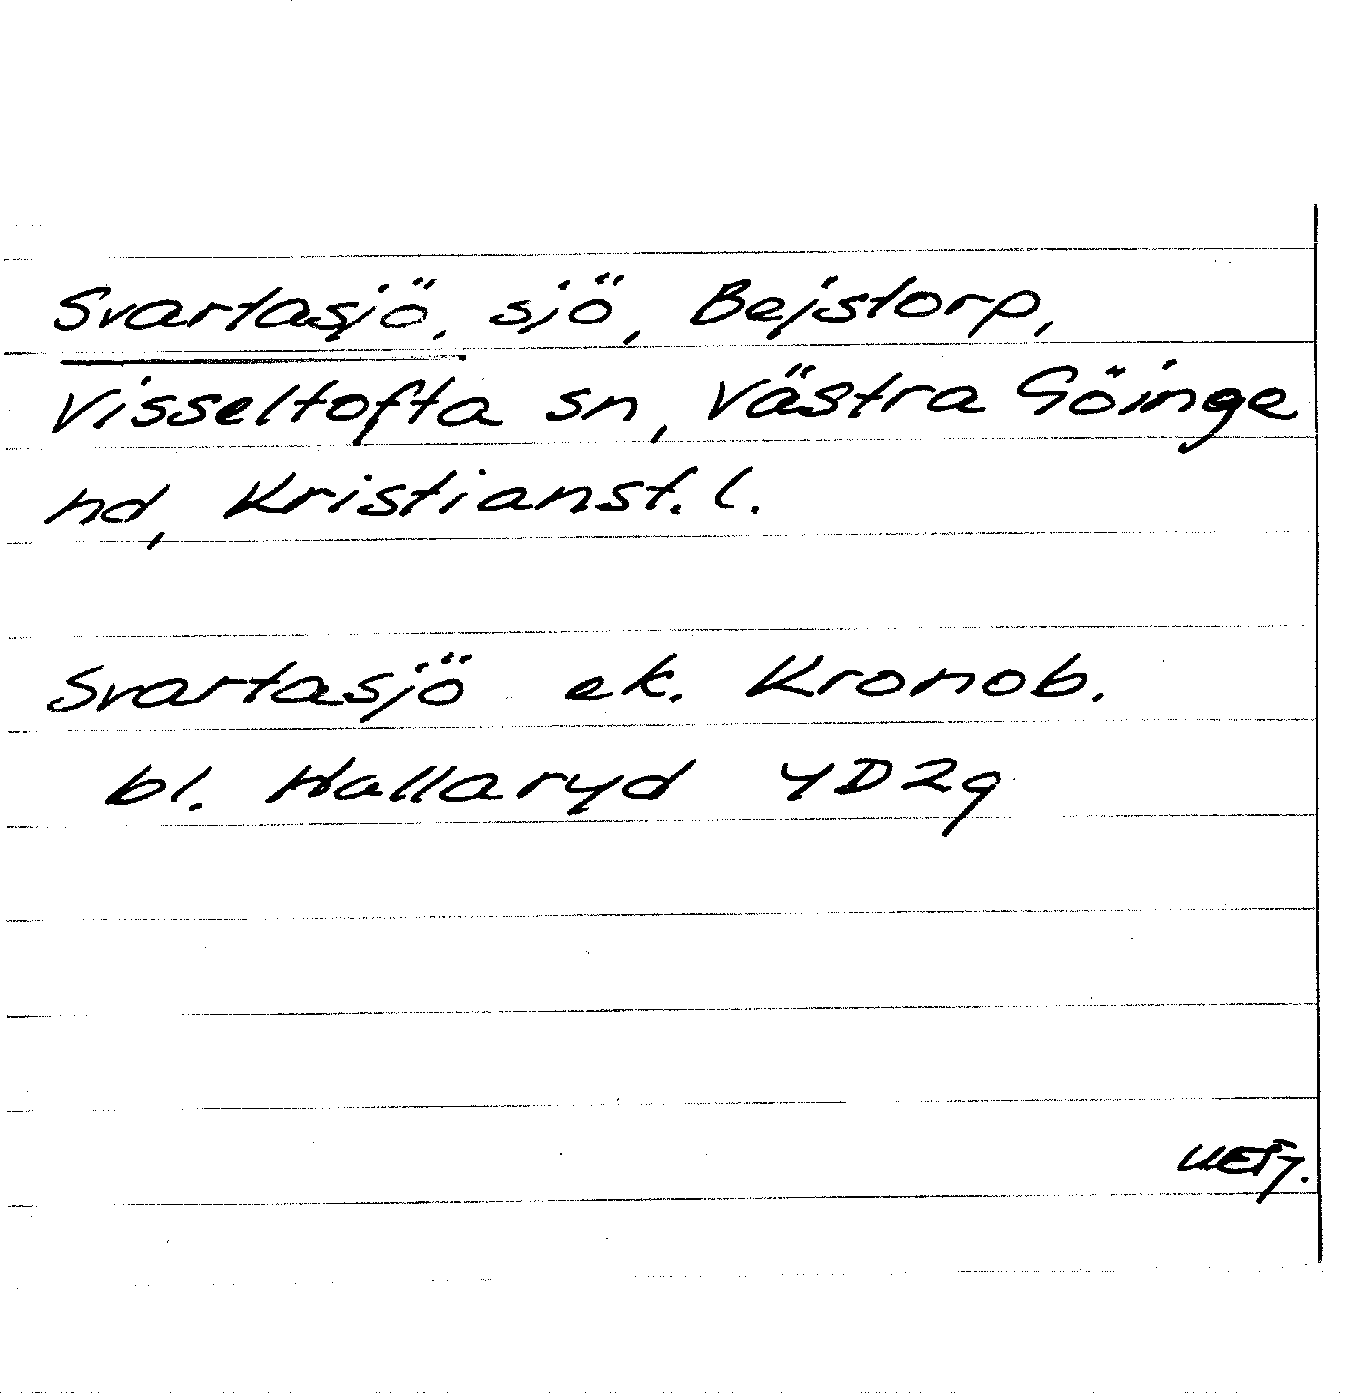 Svartasjö, sjö, Bejstorp,
Visseltofta sn, Västra Göinge
hd, Kristianst. l.
Svartasjö ek. Kronob.
bl. Hallaryd 4D2g